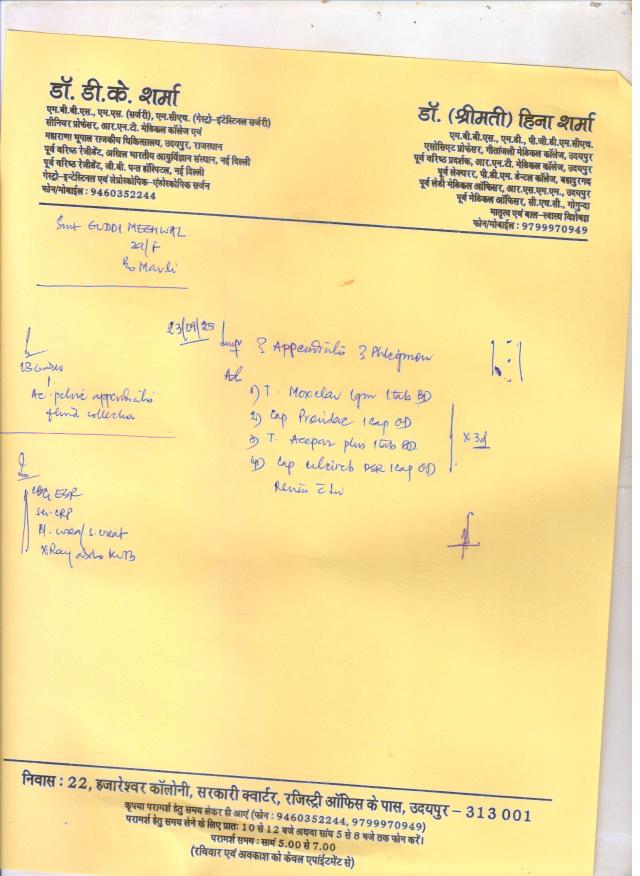 डॉ. डी.के. शर्मा
एम.बी.बी.एस., एम.एस. (सर्जरी), एम.सीएच. (गेस्ट्रो-इंटेस्टिनल सर्जरी)
सीनियर प्रोफेसर, आर.एन.टी. मेडिकल कॉलेज एवं
महाराणा भूपाल राजकीय चिकित्सालय, उदयपुर, राजस्थान
पूर्व वरिष्ठ रेजीडेंट, अखिल भारतीय आयुर्विज्ञान संस्थान, नई दिल्ली
पूर्व वरिष्ठ रेजीडेंट, जी.बी. पन्त हॉस्पिटल, नई दिल्ली
गेस्ट्रो-इन्टेस्टिनल एवं लेप्रोस्कोपिक-एंडोस्कोपिक सर्जन
फोन/मोबाईल : 9460352244
डॉ. (श्रीमती) हिना शर्मा
एम.बी.बी.एस., एम.डी., पी.जी.डी.एम.सीएच.
एसोसिएट प्रोफेसर, गीतांजली मेडिकल कॉलेज, उदयपुर
पूर्व वरिष्ठ प्रदर्शक, आर.एन.टी. मेडिकल कॉलेज, उदयपुर
पूर्व लेक्चरर, पी.डी.एम. डेन्टल कॉलेज, बहादुरगढ़
पूर्व लेडी मेडिकल ऑफिसर, आर.एस.एम.एम., उदयपुर
पूर्व मेडिकल ऑफिसर, सी.एच.सी., गोगुन्दा
मातृत्व एवं बाल-स्वास्थ्य विशेषज्ञ
फोन/मोबाईल : 9799970949
Smt GUDDI MEGHWAL
22/F
R/o Mavli
23/09/25
? Appendicitis ? Phlegmon
Adv
1) T. Moxclav 1gm 1tab BD
2) Cap 1cap OD
3) T. Acepar plus 1tab BD
4) Cap DSR 1cap OD
x 3d
Ac. pelvic appendicitis
fluid collection
CBC, ESR
Se. CRP
Bl. urea/s. creat
X-Ray abdo KUB
निवास : 22, हजारेश्वर कॉलोनी, सरकारी क्वार्टर, रजिस्ट्री ऑफिस के पास, उदयपुर – 313 001
कृपया परामर्श हेतु समय लेकर ही आएं (फोन : 9460352244, 9799970949)
परामर्श हेतु समय लेने के लिए प्रातः 10 से 12 बजे अथवा सांय 5 से 8 बजे तक फोन करें।
परामर्श समय : सायं 5.00 से 7.00
(रविवार एवं अवकाश को केवल एपाईंटमेंट से)